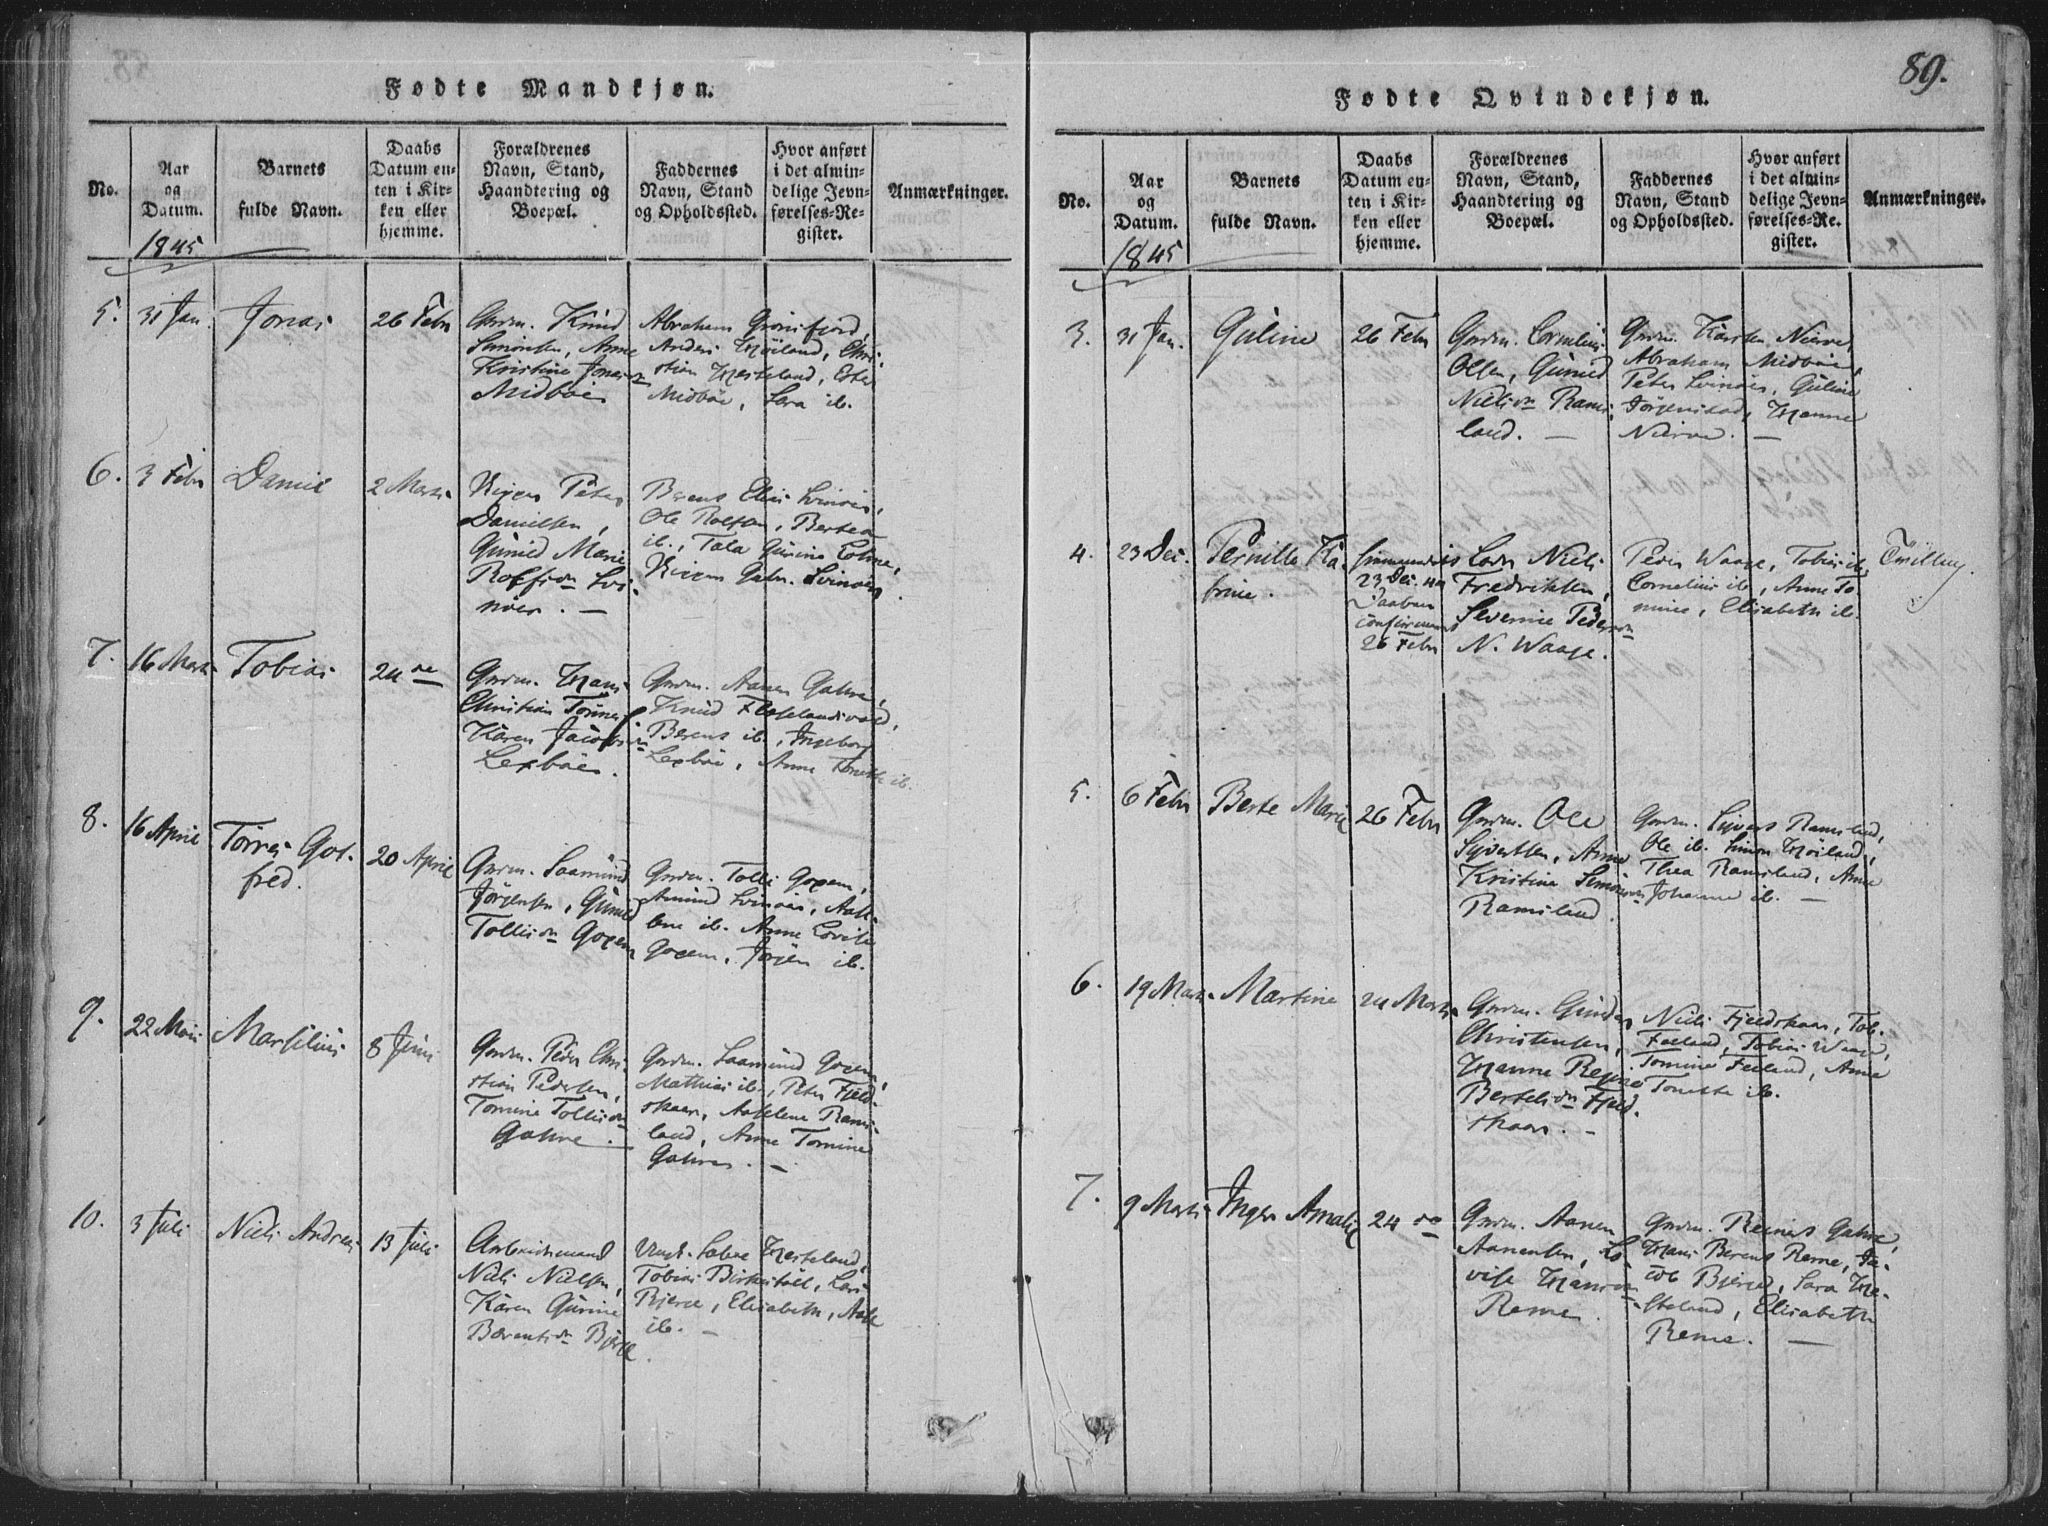 Fødte Mandkjøn.
No.
Aar
og
Datum.
Barnets
fulde Navn.
Daabs
Datum en-
ten i Kir-
ken eller
hjemme.
Forældrenes
Navn, Stand,
Haandtering og
Boepæl.
Faddernes
Navn, Stand
og Opholdssted.
Hvor anført
i det almin-
delige Jevn-
førelses-Re-
gister.
Anmærkninger.
1845
5.
31 Jan.
Jonas
26 Febr
Gmdm. Knud
Simonsen, Anne
Kristine Jonas
Midbøe
Abraham Grønsfjord,
Anders Høiland, Chri-
stian Hæsteland, Ester
Midbøe, Sara ib.
6.
3 Febr
Daniel
2 Marts
Peter
Danielsen,
Gunild Marie
Rolfs Svi-
nøer. —
Berent Elias Svinøer,
Ole Rolfsen, Bertea
ib., Tala Gurine
Gahr. Svinøer
7.
16 Marts
Tobias
24 de
Gmdm. Hans
Christian Tønnes
Karen Jacobs
Lexbøe.
Gmdm. Aanen Gahre,
Knud
Berent ib., Ingeborg
Lexbøe, Anne Tonette ib.
8.
16 April
Tørres Got-
fred.
20 April
Gmdm. Saamund
Jørgensen, Gunild
Tollis Goxem
Gmdm. Tolli Goxem,
Amund Svinøer, Aase-
lene ib. Anne Lovise
Goxem, Jørgen ib.
9.
22 Mai
Marsilius
8 Juni
Gmdm. Peder Chri-
stian Pedersen,
Tomine Tollis
Gahre.
Gmdm. Saamund Goxem,
Mathias ib., Peter Fjeld-
skaar, Aaselene Rams-
land, Anne Tomine
Gahre. —
10.
3 Juli
Niels Andreas
13 Juli
Arbeidsmand
Niels Nielsen,
Karen Gurine
Bærents Bjerge.
Ungk. Salve Hæsteland,
Tobias Birkestøl, Lars
Bjerge, Elisabeth, Aase
ib. —
89.
Fødte Qvindekjøn.
No.
Aar
og
Datum.
Barnets
fulde Navn.
Daabs
Datum en-
ten i Kir-
ken eller
hjemme.
Forældrenes
Navn, Stand,
Haandtering og
Boepæl.
Faddernes
Navn, Stand
og Opholdssted.
Hvor anført
i det almin-
delige Jevn-
førelses-Re-
gister.
Anmærkninger.
1845
3.
31 Jan.
Guline
26 Febr
Gmdm. Cornelius
Olsen, Gunild
Niels Rams-
land. —
Gmdm. Karsten Nierve,
Abraham Midbøe,
Peter Svinøer, Guline
Jørgenstad, Hanne
Nierve. —
4.
23 Dec.
Pernille Ka-
trine.
23 Dec. 44
Daaben
confirmeret
26 Febr
Lods Niels
Fredriksen,
Severine Peders
N. Waage.
Peder Waage, Tobias ib,
Cornelius ib, Anne To-
mine, Elisabeth ib.
Tvilling.
5.
6 Febr
Berte Marie
26 Febr
Gmdm. Ole
Syvertsen, Anne
Kristine Simons
Ramsland.
Gmdm. Syvert Ramsland,
Ole ib. Simon Høiland,
Thea Ramsland, Anne
Johanne ib. —
6.
19 Marts
Martine
24 Marts
Gmdm. Gunder
Christensen,
Hanne Regine
Bertels Fjeld-
skaar. —
Niels Fjeldskaar, Tob.
Feiland, Tobias Waage,
Tomine Feiland, Anne
Tonette ib.
7.
9 Marts
Inger Amalie
24 de
Gmdm. Aanen
Aanensen, Lo-
vise Hans
Reme.
Gmdm. Reiner Gahre,
Hans Berent Reme, Ja-
cob Bjerge, Sara Hæ-
steland, Elisabeth
Reme. —